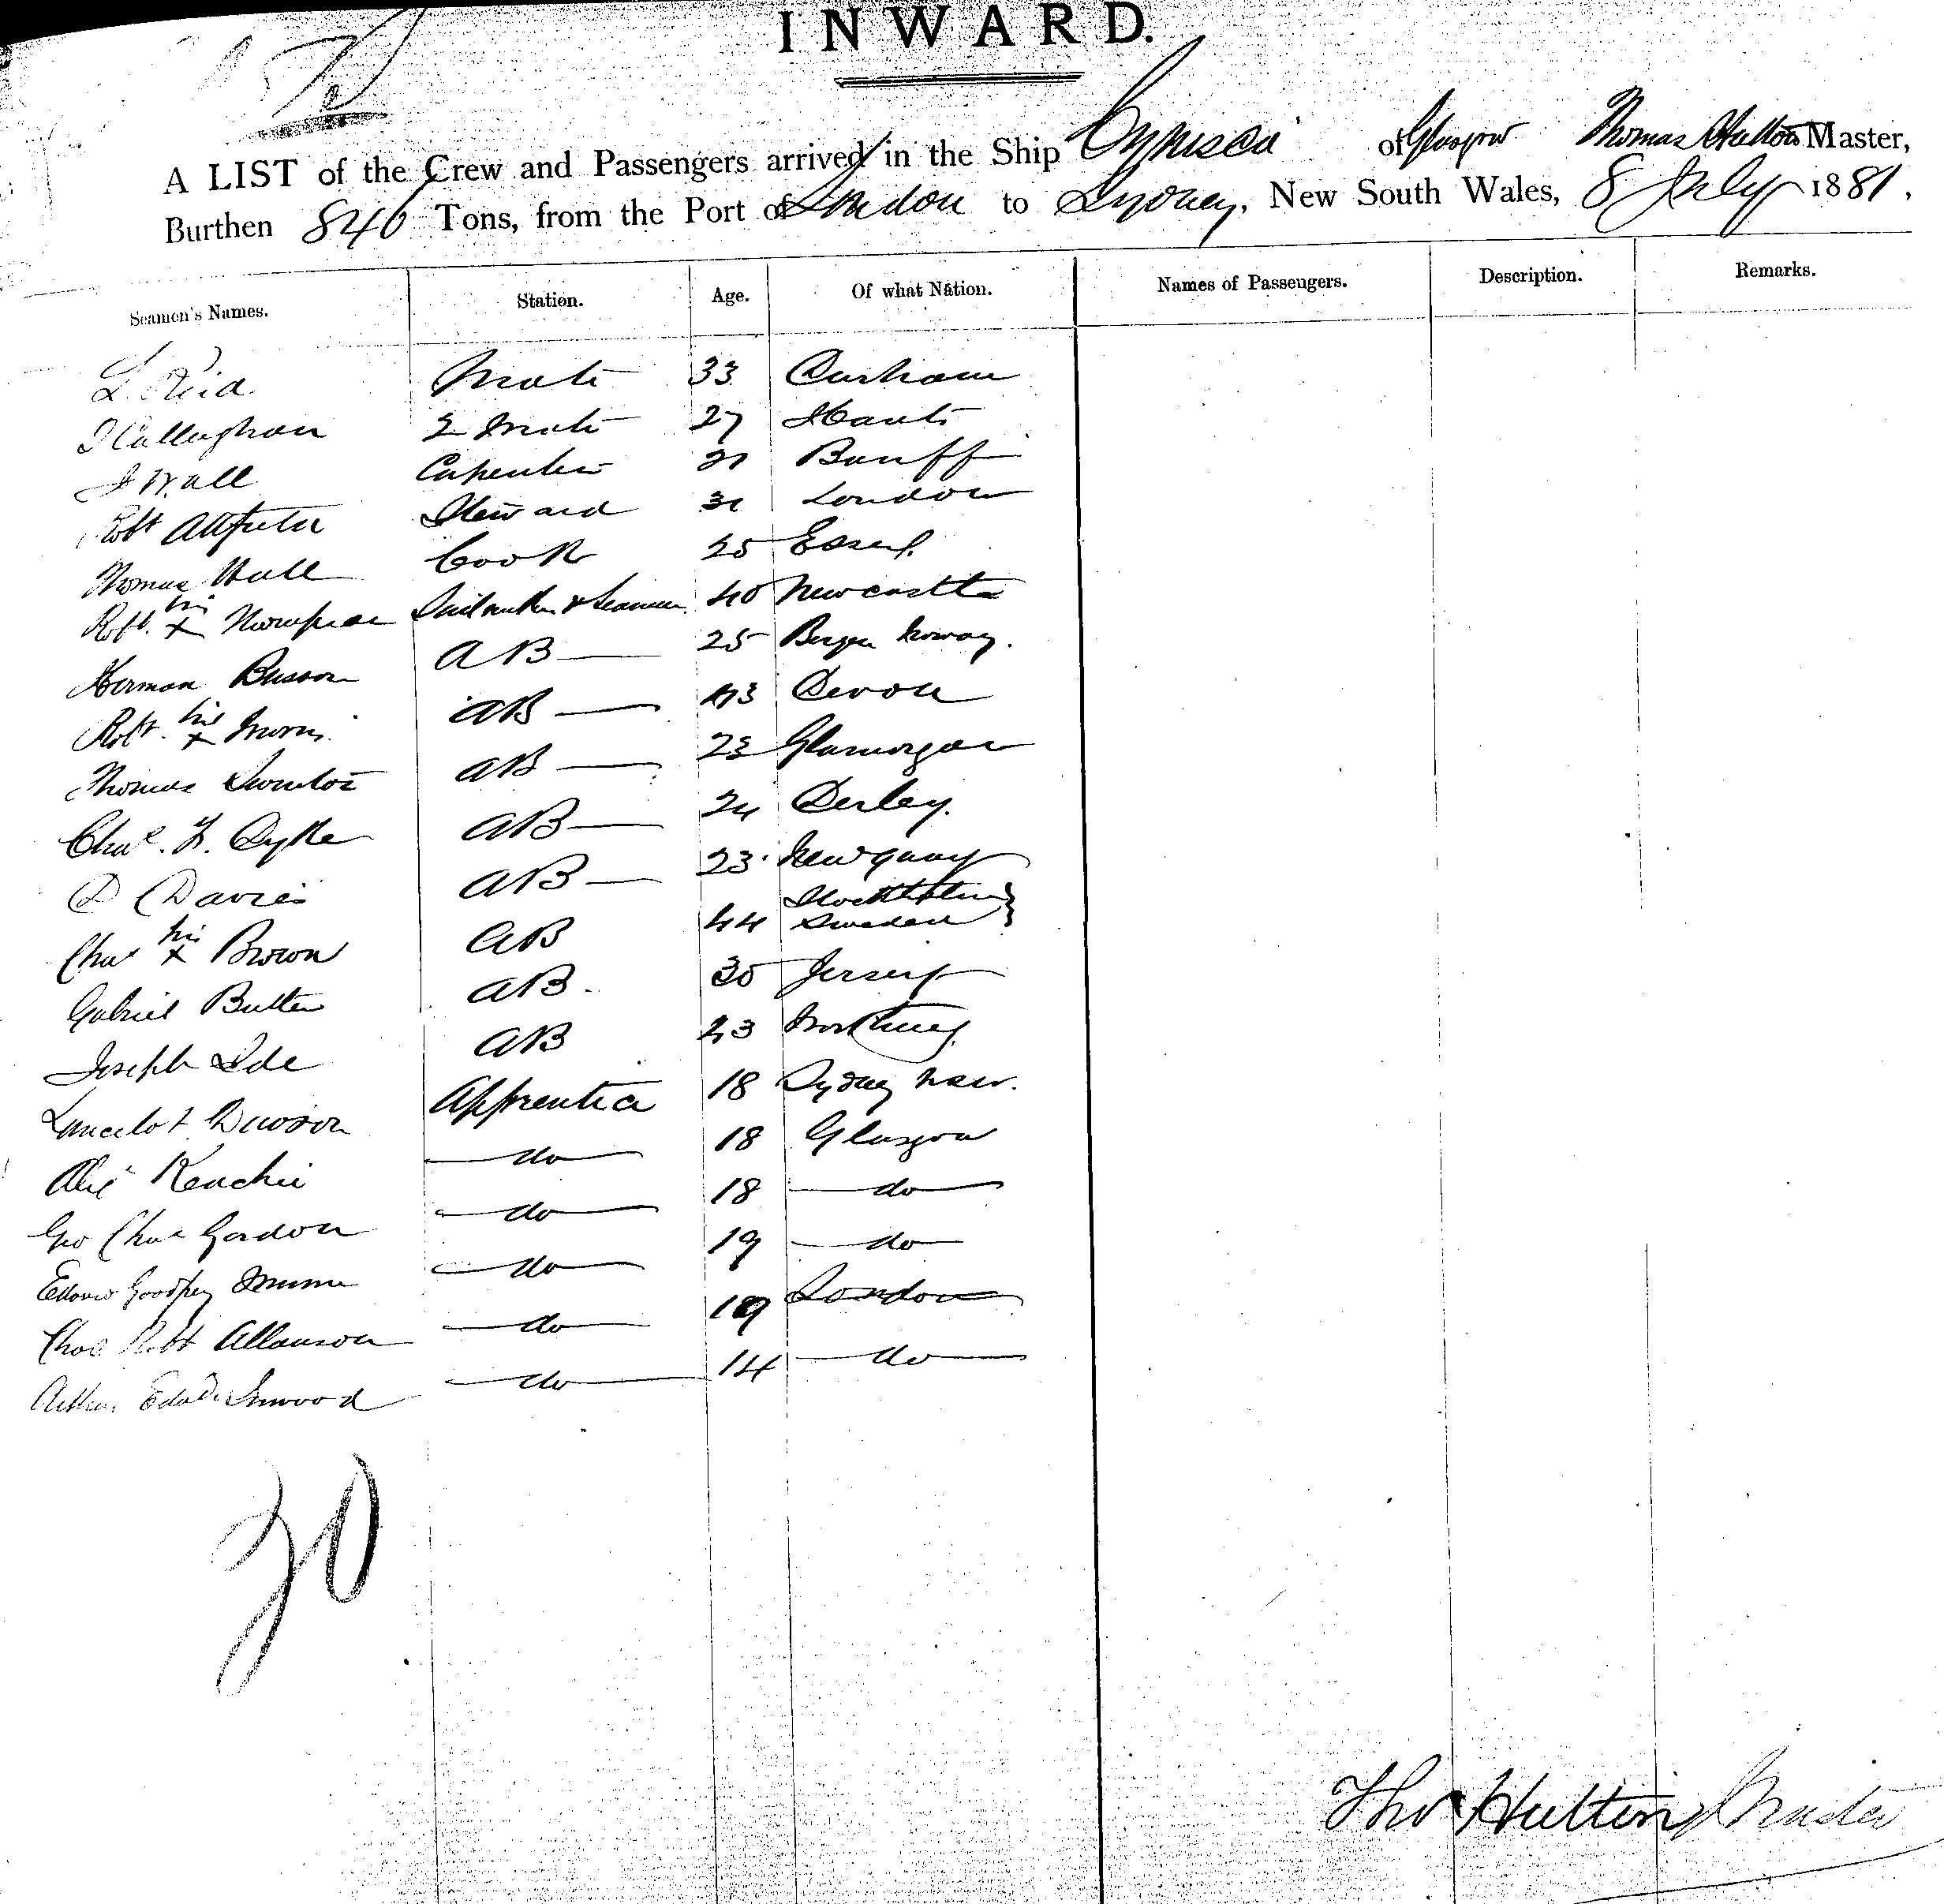 INWARD.
A LIST of the Crew and Passengers arrived in the Ship Cynisca of Glasgow Thomas Hulton Master,
Burthen 846 Tons, from the Port of London to Sydney, New South Wales, 8 July 1881.
Seamen's Names. Station. Age. Of what Nation. Names of Passengers. Description. Remarks.
L. Reid Mate 33 Durham
Callaghan 2 Mate 27 Hants
J Wall Carpenter Banff
Robt Steward 31 London
Thomas Hall Cook 25 Essex
Robt. his x Thompson Sailmaker & Seaman 40 Newcastle
Herman AB 25 Bergen Norway.
Robt. his x Morris AB 43 Devon
Thomas AB 23 Glamorgan
Chas. F. Dyke AB 24 Derby.
D Davies AB 23 Newquay
Chas his x Brown AB 44 Stockholm Sweden
Gabriel Butten AB 30 Jersey
Joseph Ide AB 23 Worthing
Lancelot Dawson Apprentice 18 Sydney NSW.
Alex Keachie do 18 Glasgow
Geo Chas Gordon do 18 do
Edward Godfrey do 19 do
Chas Robt Allanson do 19 London
Arthur Edwd. Inwood do 14 do
20
Thos Hulton Master